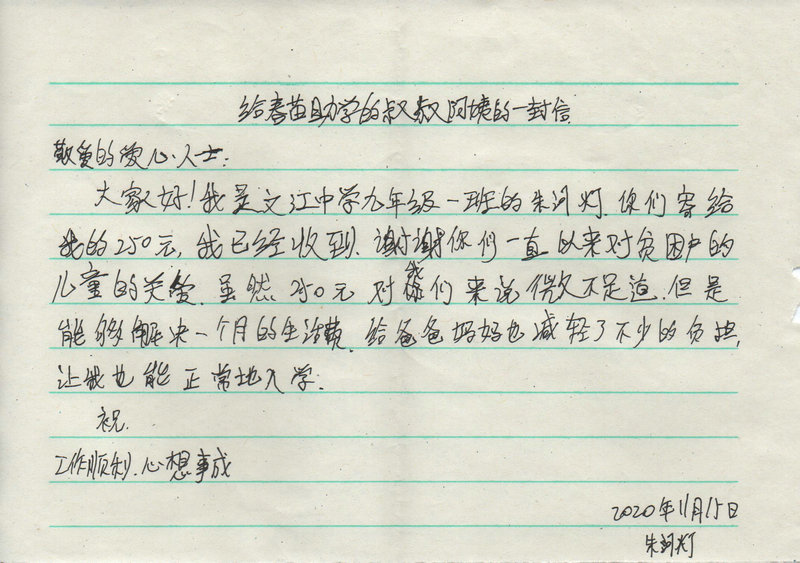 给春苗助学的叔叔阿姨的一封信
敬爱的爱心人士:
大家好!我是文江中学九年级一班的朱河灯.你们寄给
我的250元,我已经收到.谢谢你们一直以来对贫困户的
儿童的关爱.虽然250元对我们来说微不足道.但是
能够解决一个月的生活费.给爸爸妈妈也减轻了不少的负担,
让我也能正常地入学.
祝.
工作顺利.心想事成
2020年11月15日
朱河灯